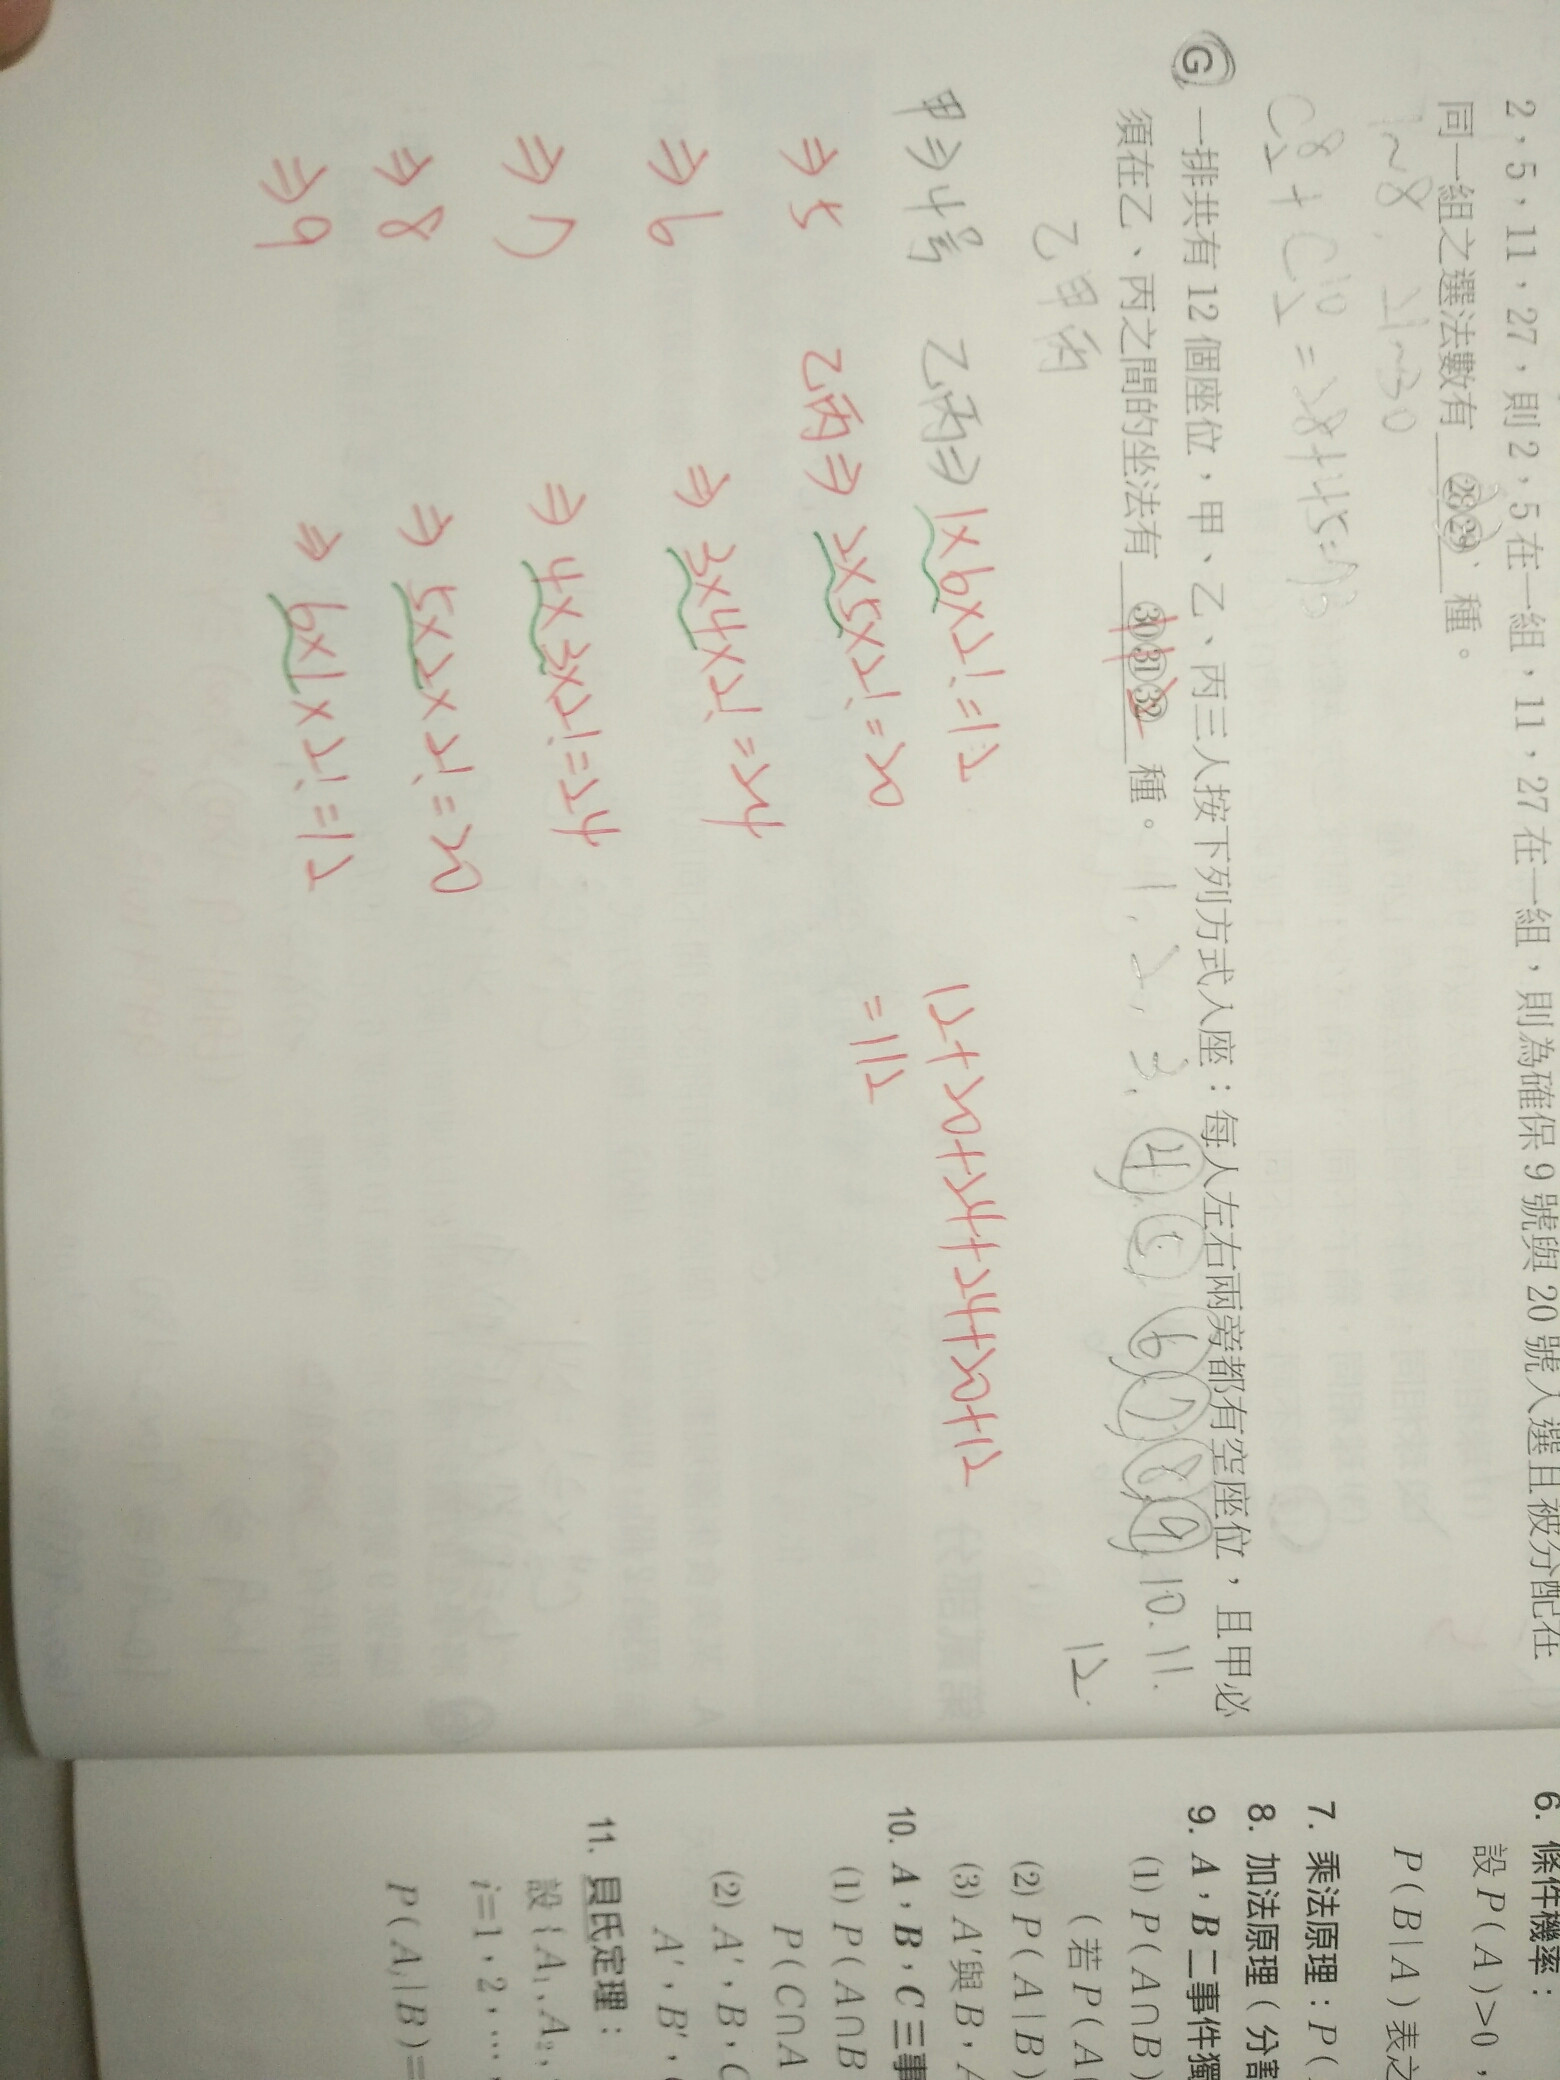 2，5，11，27，則 2，5 在一組，11，27 在一組，則為確保 9 號與 20 號入選且被分配在
同一組之選法數有 ㉘㉙ 種。
1~8, 21~30
C⁸₂ + C¹⁰₂ = 28+45=73
G 一排共有 12 個座位，甲、乙、丙三人按下列方式入座：每人左右兩旁都有空座位，且甲必
須在乙、丙之間的坐法有 ㉚㉛㉜ 種。 1, 2, 3, 4 5 6 7 8 9 10. 11.
12.
乙甲丙
甲⇒4号 乙丙⇒ 1×6×2!=12
⇒ 5 乙丙⇒ 2×5×2!=20
⇒ 6 ⇒ 3×4×2!=24
⇒ 7 ⇒ 4×3×2!=24
⇒ 8 ⇒ 5×2×2!=20
⇒ 9 ⇒ 6×1×2!=12
12+20+24+24+20+12
=112
6. 條件機率：
設 P(A)>0，
P(B|A)表之
7. 乘法原理：P(
8. 加法原理(分割
9. A，B 二事件獨
(1) P(A∩B)
(若 P(A
(2) P(A|B)
(3) A′與 B，A
10. A，B，C 三事
(1) P(A∩B
P(C∩A
(2) A′，B，C
A′，B′，
11. 貝氏定理：
設{A₁、A₂，
i=1，2，…，
P(Aᵢ|B)=